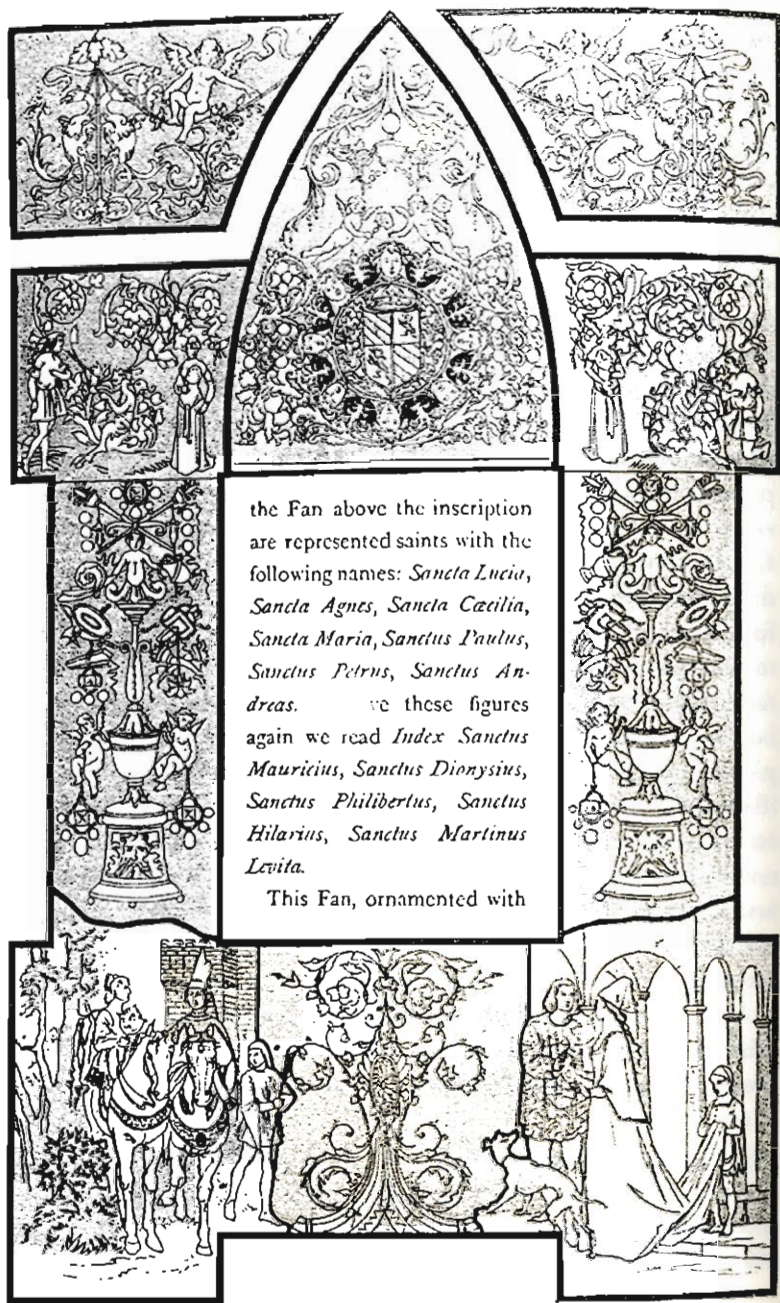 the Fan above the inscription
are represented saints with the
following names: Sancta Lucia,
Sancta Agnes, Sancta Cæcilia,
Sancta Maria, Sanctus Paulus,
Sanctus Petrus, Sanctus An-
dreas. these figures
again we read Index Sanctus
Mauricius, Sanctus Dionysius,
Sanctus Philibertus, Sanctus
Hilarius, Sanctus Martinus
Levita.
This Fan, ornamented with